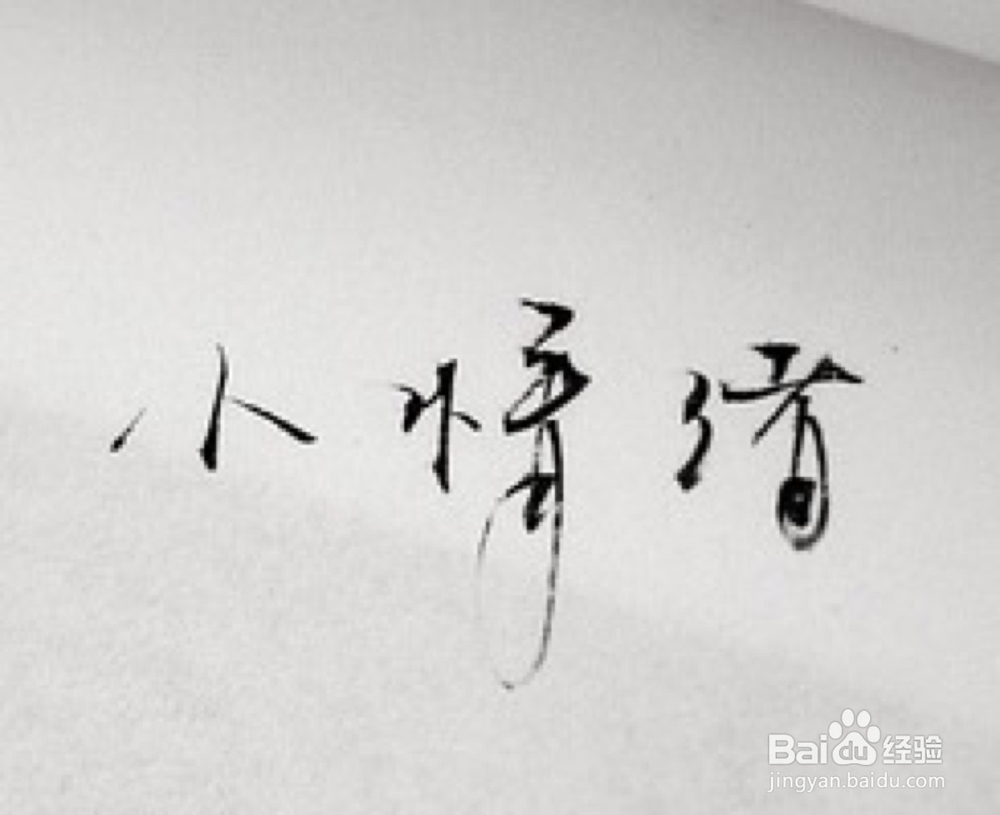 小情绪
Bai du 经验
jingyan.baidu.com